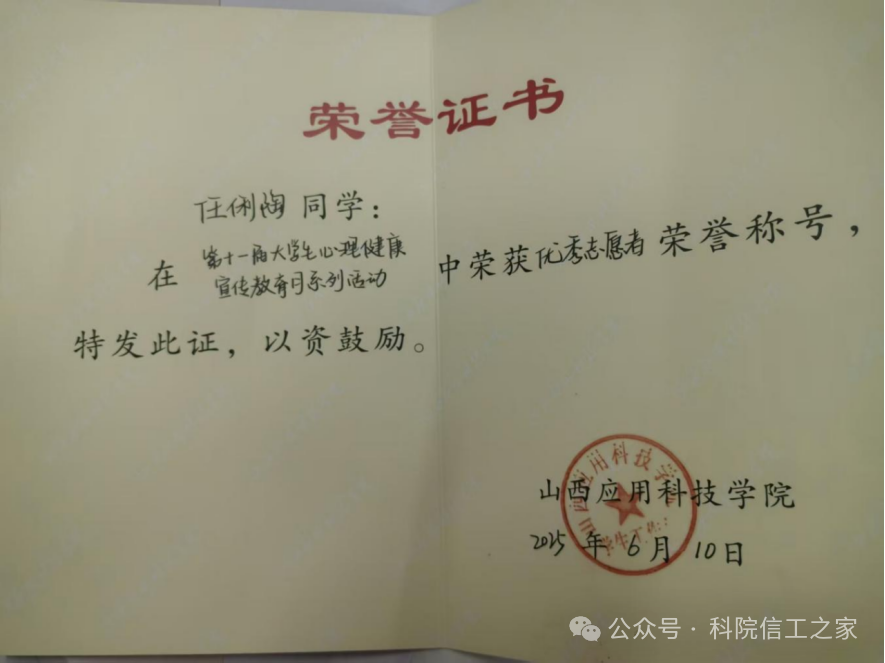 荣誉证书
任俐陶 同学：
在 第十一届大学生心理健康
宣传教育月系列活动
中荣获优秀志愿者 荣誉称号，
特发此证，以资鼓励。
山西应用科技学院
山西应用科技学院
2025 年 6 月 10 日
公众号 · 科院信工之家